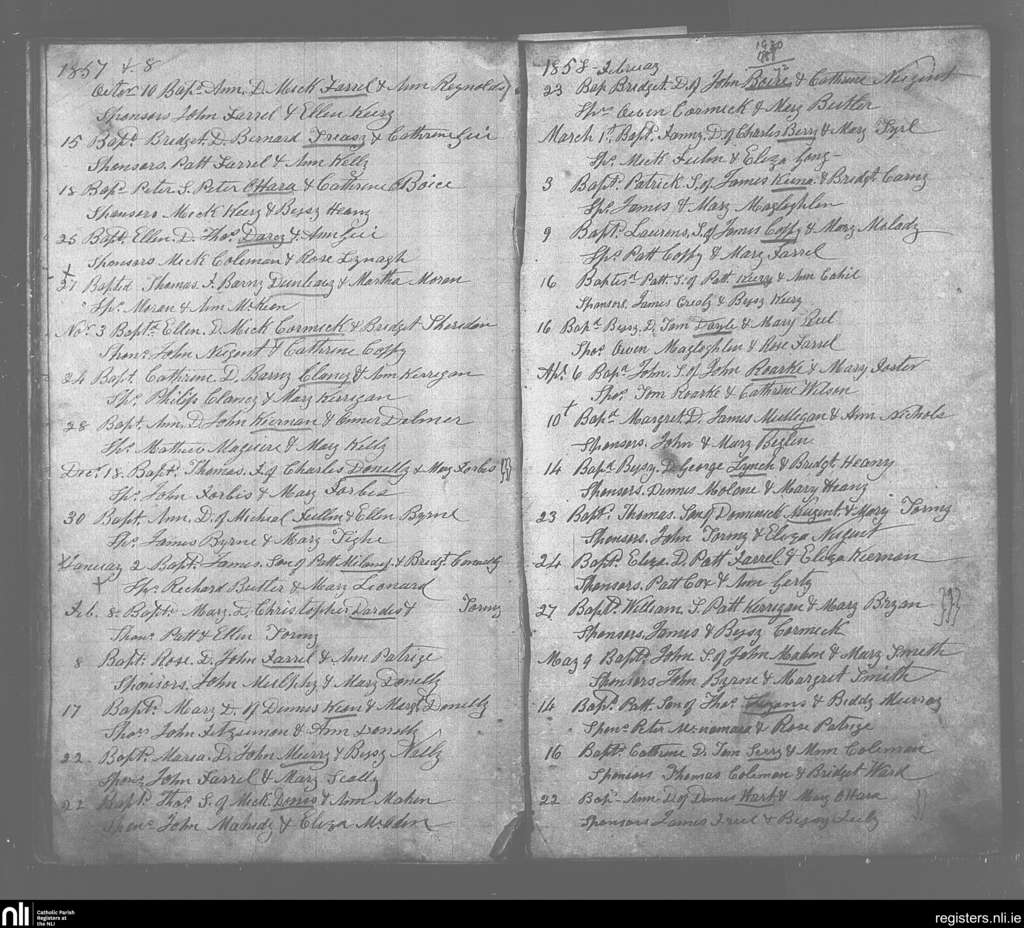 1857 & 8
Octor 10 Bapd. Ann. D. Mick Farrel & Ann Reynolds
Sponsors John Farrel & Ellen Keery
15 Bapd. Bridget. D. Bernard Treacy & Cathrine Geir
Sponsors. Patt Farrel & Ann Kelly
18 Bapd. Peter S. Peter OHara & Cathrine Boice
Sponsors Mick Keery & Bessy Heany
25 Bapt. Ellen. D. Thos. Darcy & Ann Geir
Sponsors Mick Coleman & Rose Lynagh
27 Baptd. Thomas. S. Barny Dunleavy & Martha Moran
Sps. Moran & Ann McKeon
Nov. 3 Baptd. Ellen. D. Mick Cormick & Bridget Sheridan
Spons. John Nugent & Cathrine Coffy
24 Bapt. Cathrine D. Barny Clancy & Ann Kerrigan
Sps. Philip Clancy & Mary Kerrigan
28 Bapt. Ann. D. John Kiernan & Emer Dalmer
Sps. Mathew Maguire & Mary Kelly
Dec. 18. Bapt. Thomas. S. of Charles Donelly & Mary Forbis
Sps. John Forbis & Mary Forbis
30 Bapt. Ann. D. of Micheal Fullin & Ellen Byrne
Sps. James Byrne & Mary Tighe
January 2 Bapt. James. Son of Patt & Bridgt. Connelly
Sps. Richard Butler & Mary Leonard
Feb. 8. Bapt. Mary D. Christopher Dardis & Tormy
Spons. Patt & Ellen Tormy
8 Bapt. Rose. D. John Farrel & Ann Patrige
Sponsors. John Mulphy & Mary Donelly
17 Bapt. Mary D. of Dennis Keon & Margt. Donelly
Spos. John Fitzsimon & Ann Donelly
22. Bapt. Maria. D. John Murry & Bessy Kelly
Spons. John Farrel & Mary Scally
22 Bapt. Thos. S. of Mick. & Ann Mahon
Spons. John & Eliza
1858 February
23 Bap. Bridget. D. of John Boice & Cathrine Nugent
Sps. Owen Cormick & Mary Butler
March 1st. Bapt. Fanny. D. of Charles Berry & Mary
Sps. Mick & Eliza
3 Bapt. Patrick. S. of James Keena & Bridgt. Carny
Sps. James & Mary Magloghlen
9 Bapt. Laurens. S. of James Coffy & Mary Melady
Sps. Patt Coffy & Mary Farrel
16 Baptisd. Patt. S. of Patt. Keery & Ann Cahil
Sponsors. James & Bessy Keery
16 Bapd. Bessy. D. Tom Doyle & Mary
Spos. Owen Magloghlen & Rose Farrel
Apl. 6 Bapd. John. S. of John Roarke & Mary Foster
Spos. Tom Roarke & Cathrine Wilson
10 Bapd. Margret. D. James Mulligan & Ann Nichols
Sponsors. John & Mary Beglin
14 Bapd. Bessy. D. George Lynch & Bridgt Heany
Sponsors. Dennis Molone & Mary Heany
23 Bapt. Thomas. Son of Domenick Nugent & Mary Tormy
Sponsors. John Tormy & Eliza Nugent
24 Bapt. Eliza. D. Patt Farrel & Eliza Kiernan
Sponsors. Patt Cox & Ann Gerty
27 Bapt. William. S. Patt Kerrigan & Mary Bryan
Sponsors. James & Bessy Cormick
May 9 Bapt. John S. of John Mahon & Mary Smith
Sponsors John Byrne & Margret Smith
14 Bapt. Patt. Son of Thos. & Biddy Murray
Spons. Peter McNamara & Rose Patrige
16 Bapt. Cathrine D. Tom Seery & Mam Coleman
Sponsors Thomas Coleman & Bridget Ward
22 Bap. Ann D. of Dennis Ward & Mary OHara
Sponsors James & Bessy
nli
Catholic Parish
Registers at
the NLI
registers.nli.ie